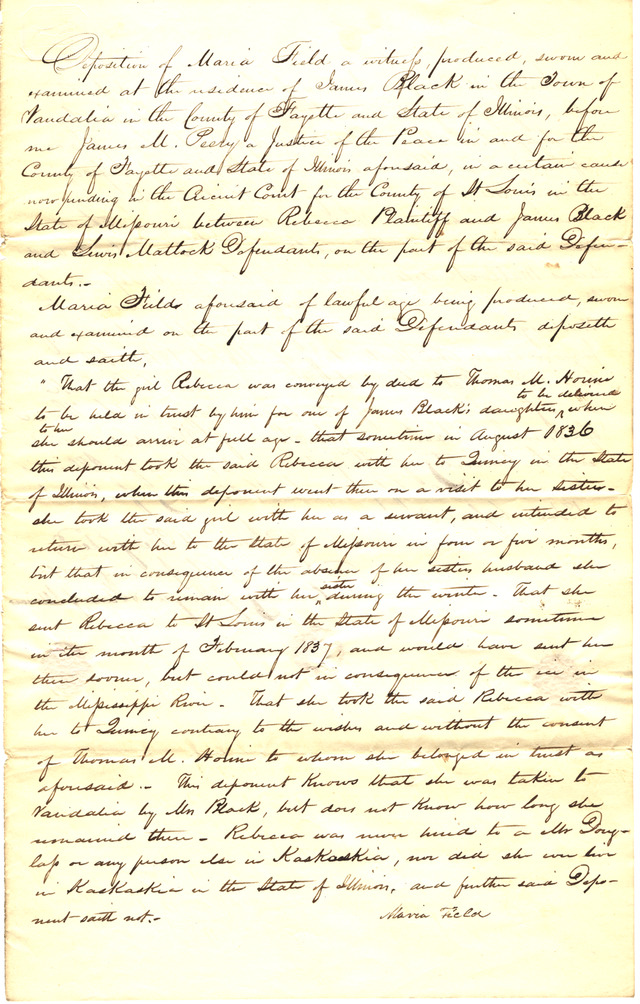 Deposition of Maria Field a witness, produced, sworn and
examined at the residence of James Black in the Town of
Vandalia in the County of Fayette and State of Illinois, before
me James M. Peery a Justice of the Peace in and for the
County of Fayette and State of Illinois aforesaid, in a certain cause
now pending in the Circuit Court for the County of St Louis in the
State of Missouri between Rebecca Plaintiff and James Black
and Lewis Mattock Defendants, on the part of the said Defen-
dants.-
Maria Field aforesaid of lawful age being produced, sworn
and examined on the part of the said Defendants deposeth
and saith,
" That the girl Rebecca was conveyed by deed to Thomas M. Horine
to be delivered
to be held in trust by him for one of James Black's daughters, when
to her
she should arrive at full age - that sometime in August 1836
this deponent took the said Rebecca with her to Quincy in the State
of Illinois, when this deponent went there on a visit to her sisters-
she took the said girl with her as a servant, and intended to
return with her to the State of Missouri in four or five months,
but that in consequence of the absence of her sisters husband she
concluded to remain with her sister during the winter - That she
sent Rebecca to St Louis in the State of Missouri sometime
in the month of February 1837, and would have sent her
there sooner, but could not in consequence of the ice in
the Mississippi River - That she took the said Rebecca with
her to Quincy contrary to the wishes and without the consent
of Thomas M. Horine to whom she belonged in trust as
aforesaid - This deponent knows that she was taken to
Vandalia by Mrs Black, but does not know how long she
remained there - Rebecca was never hired to a Mr Doug-
lass or any person else in Kaskaskia, nor did she ever live
in Kaskaskia in the State of Illinois, and further said Depo-
nent saith not.-
Maria Field